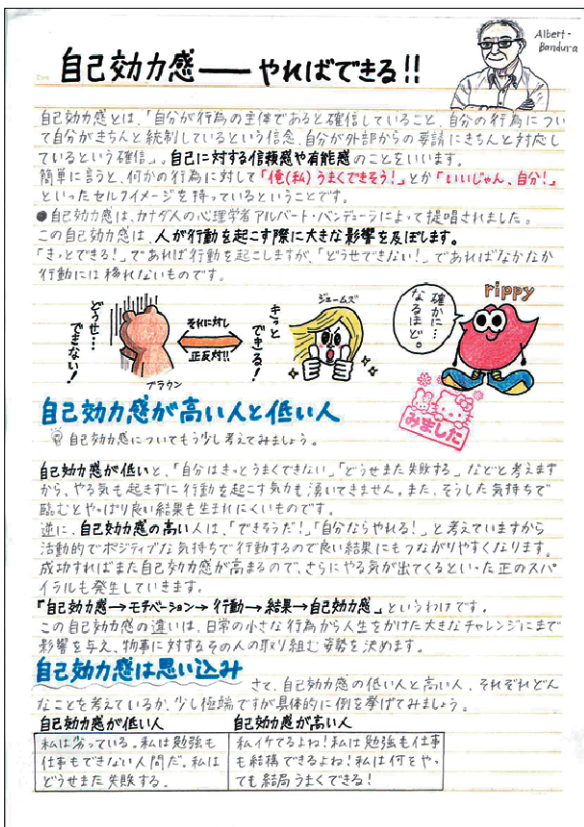 Albert-
Bandura
自己効力感――やればできる!!
自己効力感とは、「自分が行為の主体であると確信していること、自分の行為につい
て自分がきちんと統制しているという信念、自分が外部からの要請にきちんと対応し
ているという確信」。自己に対する信頼感や有能感のことをいいます。
簡単に言うと、何かの行為に対して「俺(私)うまくできそう!」とか「いいじゃん、自分!」
といったセルフイメージを持っているということです。
●自己効力感は、カナダ人の心理学者アルバート・バンデューラによって提唱されました。
この自己効力感は、人が行動を起こす際に大きな影響を及ぼします。
「きっとできる!」であれば行動を起こしますが、「どうせできない!」であればなかなか
行動には移れないものです。
どうせ…
できない!
ブラウン
それに対し
正反対!!
きっと
できる!
ジェームズ
確かに…
なるほど。
rippy
みました
自己効力感が高い人と低い人
自己効力感についてもう少し考えてみましょう。
自己効力感が低いと、「自分はきっとうまくできない」「どうせまた失敗する」などと考えます
から、やる気も起きずに行動を起こす気力も湧いてきません。また、そうした気持ちで
臨むとやっぱり良い結果も生まれにくいものです。
逆に、自己効力感の高い人は、「できそうだ!」「自分ならやれる!」と考えていますから
活動的でポジティブな気持ちで行動するので良い結果にもつながりやすくなります。
成功すればまた自己効力感が高まるので、さらにやる気が出てくるといった正のスパ
イラルも発生していきます。
『自己効力感→モチベーション→行動→結果→自己効力感』というわけです。
この自己効力感の違いは、日常の小さな行為から人生をかけた大きなチャレンジにまで
影響を与え、物事に対するその人の取り組む姿勢を決めます。
自己効力感は思い込み
さて、自己効力感の低い人と高い人、それぞれどん
なことを考えているか、少し極端ですが具体的に例を挙げてみましょう。
自己効力感が低い人
私は劣っている。私は勉強も
仕事もできない人間だ。私は
どうせまた失敗する。
自己効力感が高い人
私イケてるよね!私は勉強も仕事
も結構できるよね!私は何をやっ
ても結局うまくできる!